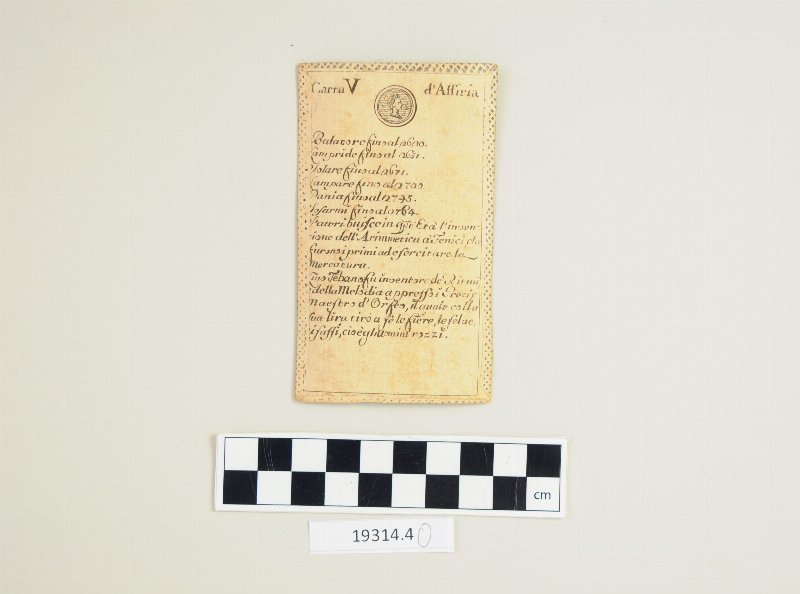 Carta V d'Assiria
Balatore fino al 2600.
Lampride fino al 2631.
Solare fino al 2671.
Lampare fino al 2700
Pania fino al 2745.
Sosarmi fino al 2764.
buisce in qst Età l'inven-
zione dell'Arimmetica a' Fenici che
furono i primi ad esercitare la
Mercatura.
Lino Tebano fu inventore de' Ritmi
della Melodia appresso i Greci
maestro d'Orfeo, il quale colla
sua lira tirò a se le fiere, le selve,
i sassi, cioè gli uomini rozzi.
cm
19314.4